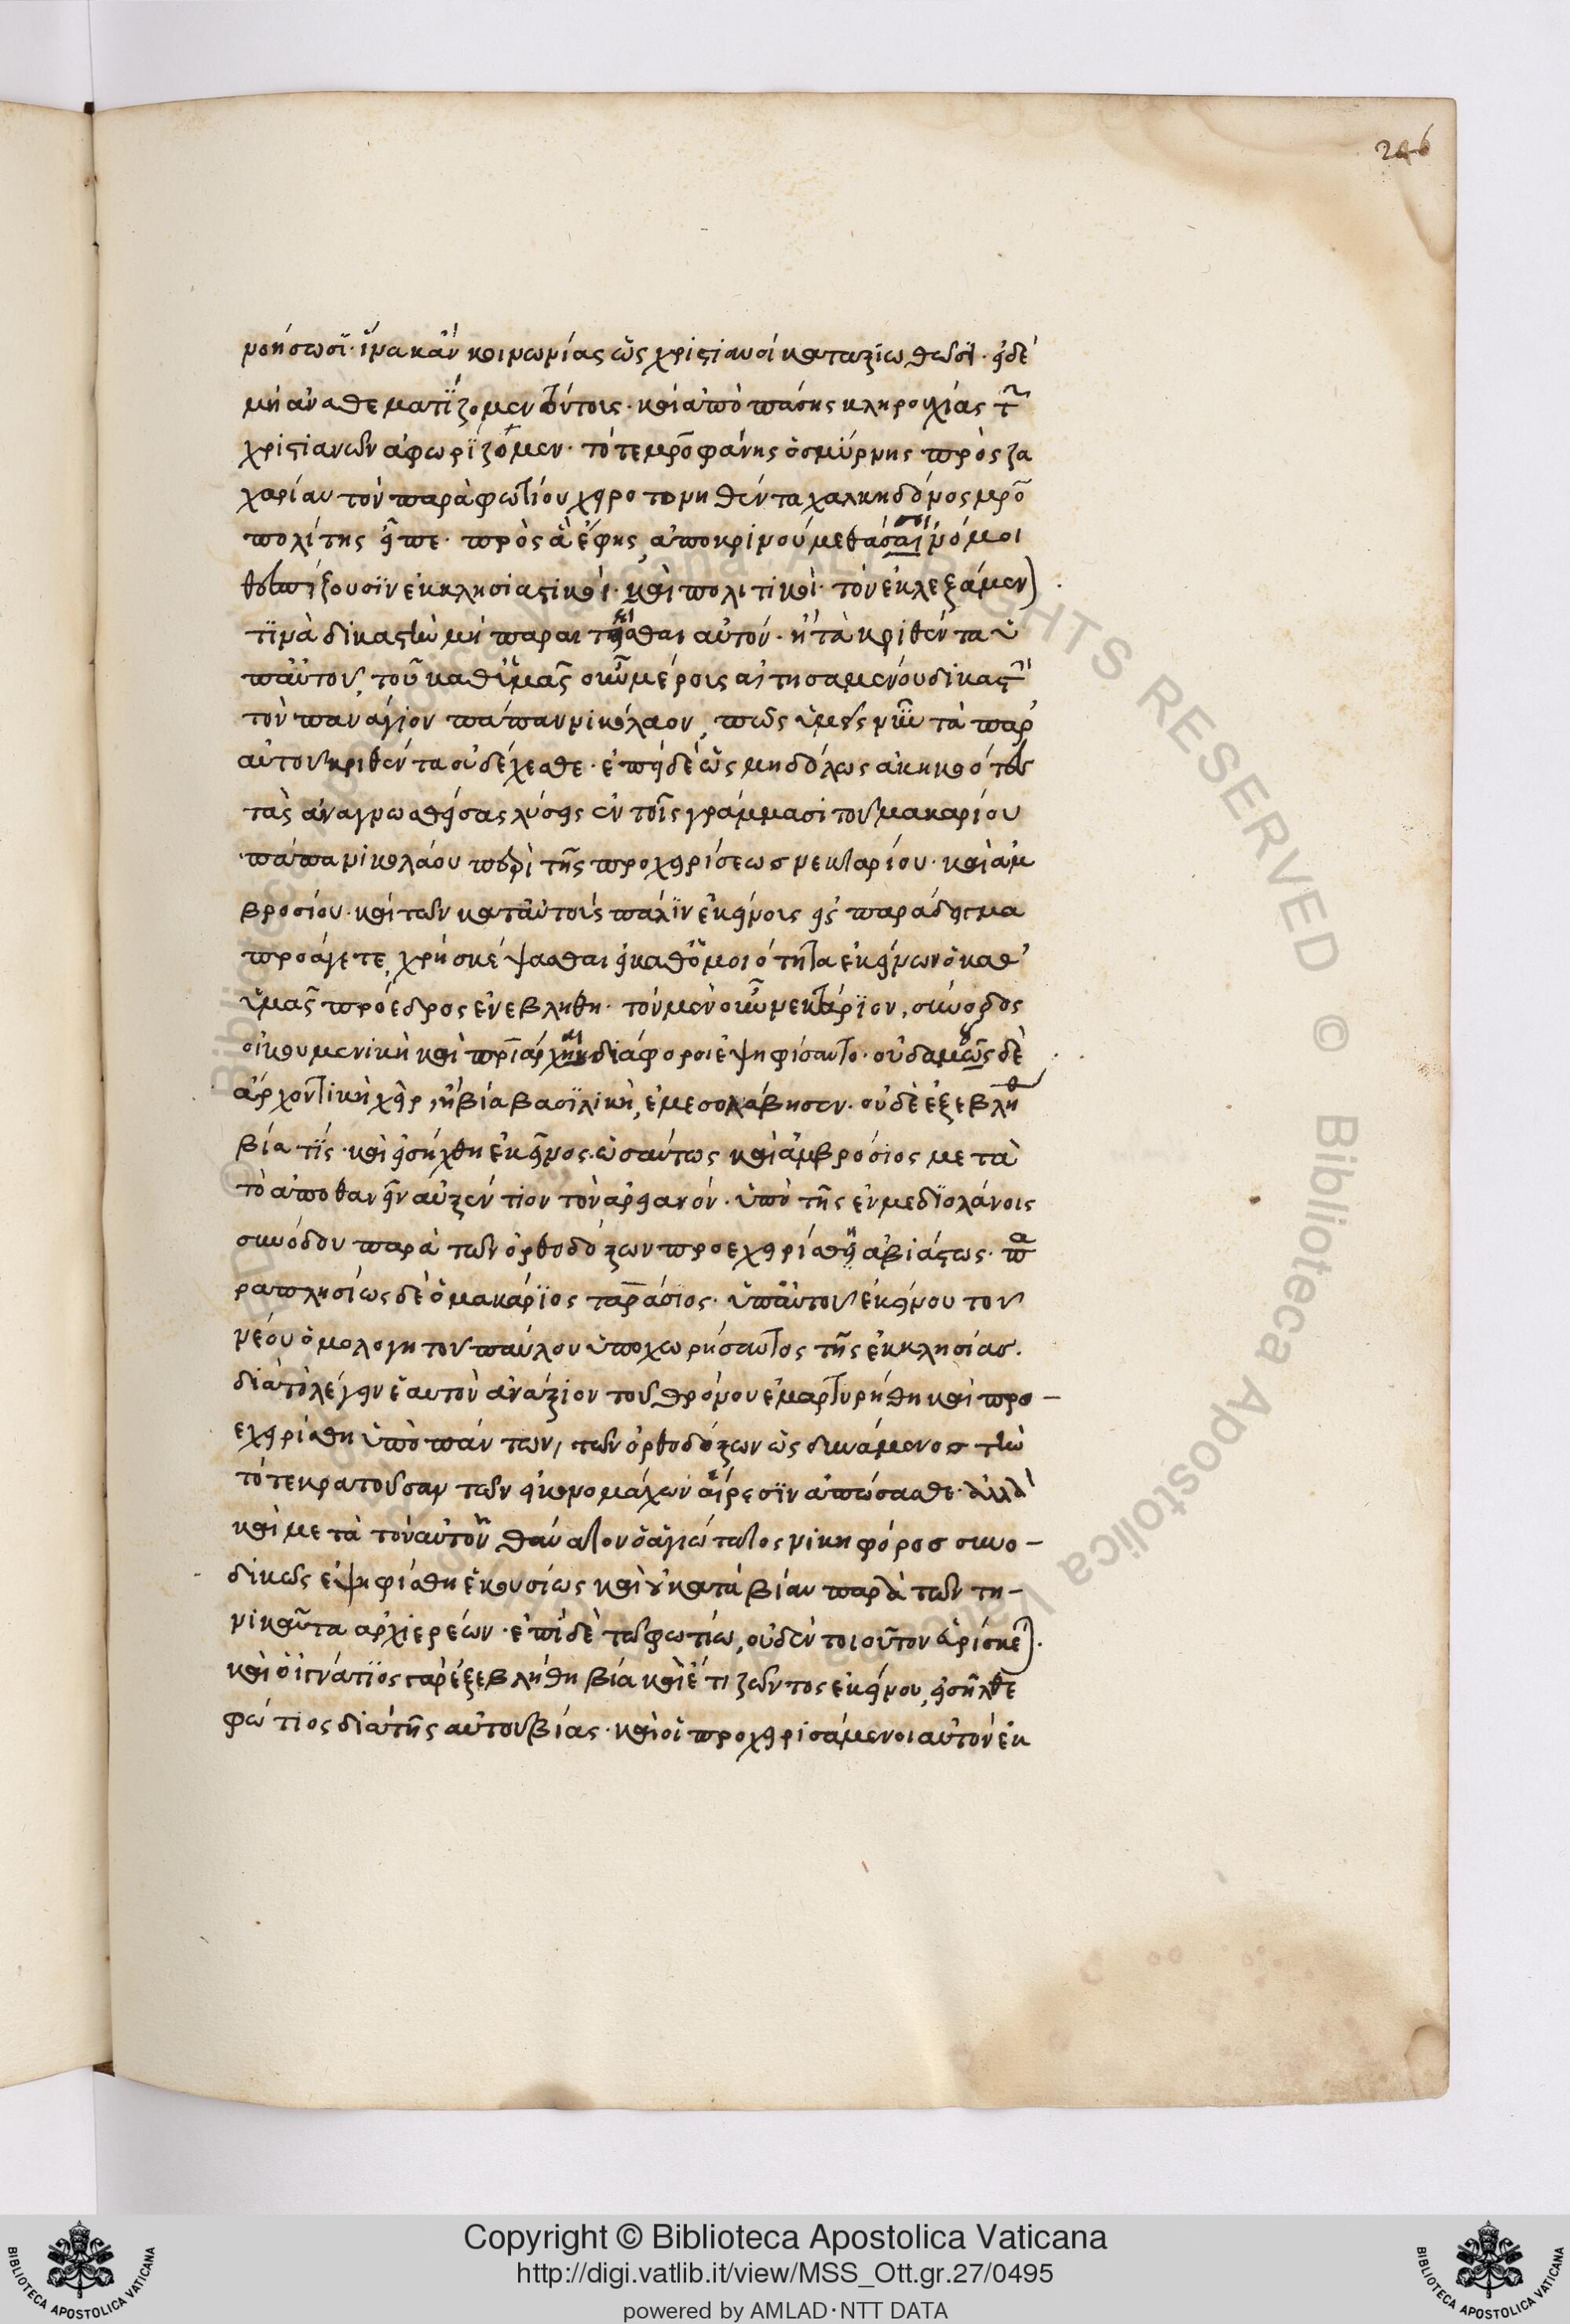 246
νοήσωσϊ· ἵνα κἂν κοινωνίας ὡς χριστιανοὶ καταξιωθῶσι· εἰ δὲ
μὴ ἀναθεματΐζομεν τούτοις· καὶ ἀπὸ πάσης κληρουχίας τ̃
χριστιανῶν ἀφωρΐζομεν· τότε μρ̅οφάνης ὁ σμύρνης πρὸς ζα
χαρίαν τὸν παρὰ φωτίου χειροτονηθέντα χαλκηδόνος μρ̅ο
πολίτης εἶπε· πρὸς ἃ ἔφης, ἀποκρινούμεθά σοι, νόμοι
θεσπίζουσϊν ἐκκλησιαστικοὶ· καὶ πολιτικοὶ· τὸν ἐκλεξάμεν)
τϊνὰ δικαστὴν μὴ παραιτεῖσθαι αὐτόν· ἢ τὰ κριθέντα ὑ
π' αὐτοῦ, τοῦ καθ' ὑμᾶς οὖν μέρους αἰτησαμένου δικαστ
τὸν παναγίον πάπαν νικόλαον, πῶς ὑμεῖς νῦν τὰ παρ'
αὐτοῦ κριθέντα οὐ δέχεσθε· ἐπεὶ δὲ ὡς μηδόλως ἀκηκοότες
τὰς ἀναγνωσθείσας λύσεις ἐν τοῖς γράμμασι τοῦ μακαρίου
πάπα νικολάου περὶ τῆς προχειρίσεως νεκταρίου· καὶ ἀμ
βροσίου· καὶ τῶν κατ' αὐτοὺς πάλϊν ἐκείνοις εἰς παράδειγμα
προάγετε, χρὴ σκέψασθαι εἰ καθ' ὁμοιότητα ἐκείνων ὁ καθ'
ὑμᾶς πρόεδρος ἐνεβλήθη· τὸν μὲν οὖν νεκτάρϊον, σύνοδος
οἰκουμενικὴ καὶ πρϊάρχαι διάφοροι ἐψηφίσαντο· οὐδαμῶς δὲ
ἀρχοντικὴ χεὶρ, ἢ βία βασϊλικὴ, ἐμεσολάβησεν· οὐδὲ ἐξεβλήθ
βία τϊς· καὶ εἰσήχθη ἐκεῖνος· ὡσαύτως καὶ ἀμβρόσιος μετὰ
τὸ ἀποθανεῖν αὐξέντιον τὸν ἀρειανόν· ὑπὸ τῆς ἐν μεδϊολάνοις
συνόδου παρὰ τῶν ὀρθοδόξων προεχειρίσθη ἀβιάστως· πα
ραπλησίως δὲ ὁ μακάρϊος ταράσϊος· ὑπ' αὐτοῦ ἐκείνου τοῦ
νέου ὁμολογητοῦ παύλου ὑποχωρήσαντος τῆς ἐκκλησίας·
διὰ τὸ λέγειν ἑαυτὸν ἀνάξιον τοῦ θρόνου ἐμαρτυρήθη καὶ προ-
εχειρίσθη ὑπὸ πάντων, τῶν ὀρθοδόξων ὡς δυνάμενος τὴν
τότε κρατοῦσαν τῶν εἰκονομάχων αἵρεσϊν ἀπώσασθε· ἀλλὰ
καὶ μετὰ τὸν αὐτοῦ θάνατον ὁ ἁγιώτατος νικηφόρος συνο-
δικῶς ἐψηφίσθη ἑκουσίως καὶ οὐ κατὰ βίαν παρὰ τῶν τη-
νικαῦτα ἀρχιερέων· ἐπὶ δὲ τῶ φωτίω, οὐδὲν τοιοῦτον εὑρίσκε)·
καὶ ὁ ἰγνάτϊος γὰρ ἐξεβλήθη βία καὶ ἔτι ζῶντος ἐκείνου, εἰσῆλθε
φώτιος διὰ τῆς αὐτοῦ βίας· καὶ οἱ προχειρισάμενοι αὐτὸν ἐκ
Copyright © Biblioteca Apostolica Vaticana
http://digi.vatlib.it/view/MSS_Ott.gr.27/0495
powered by AMLAD·NTT DATA